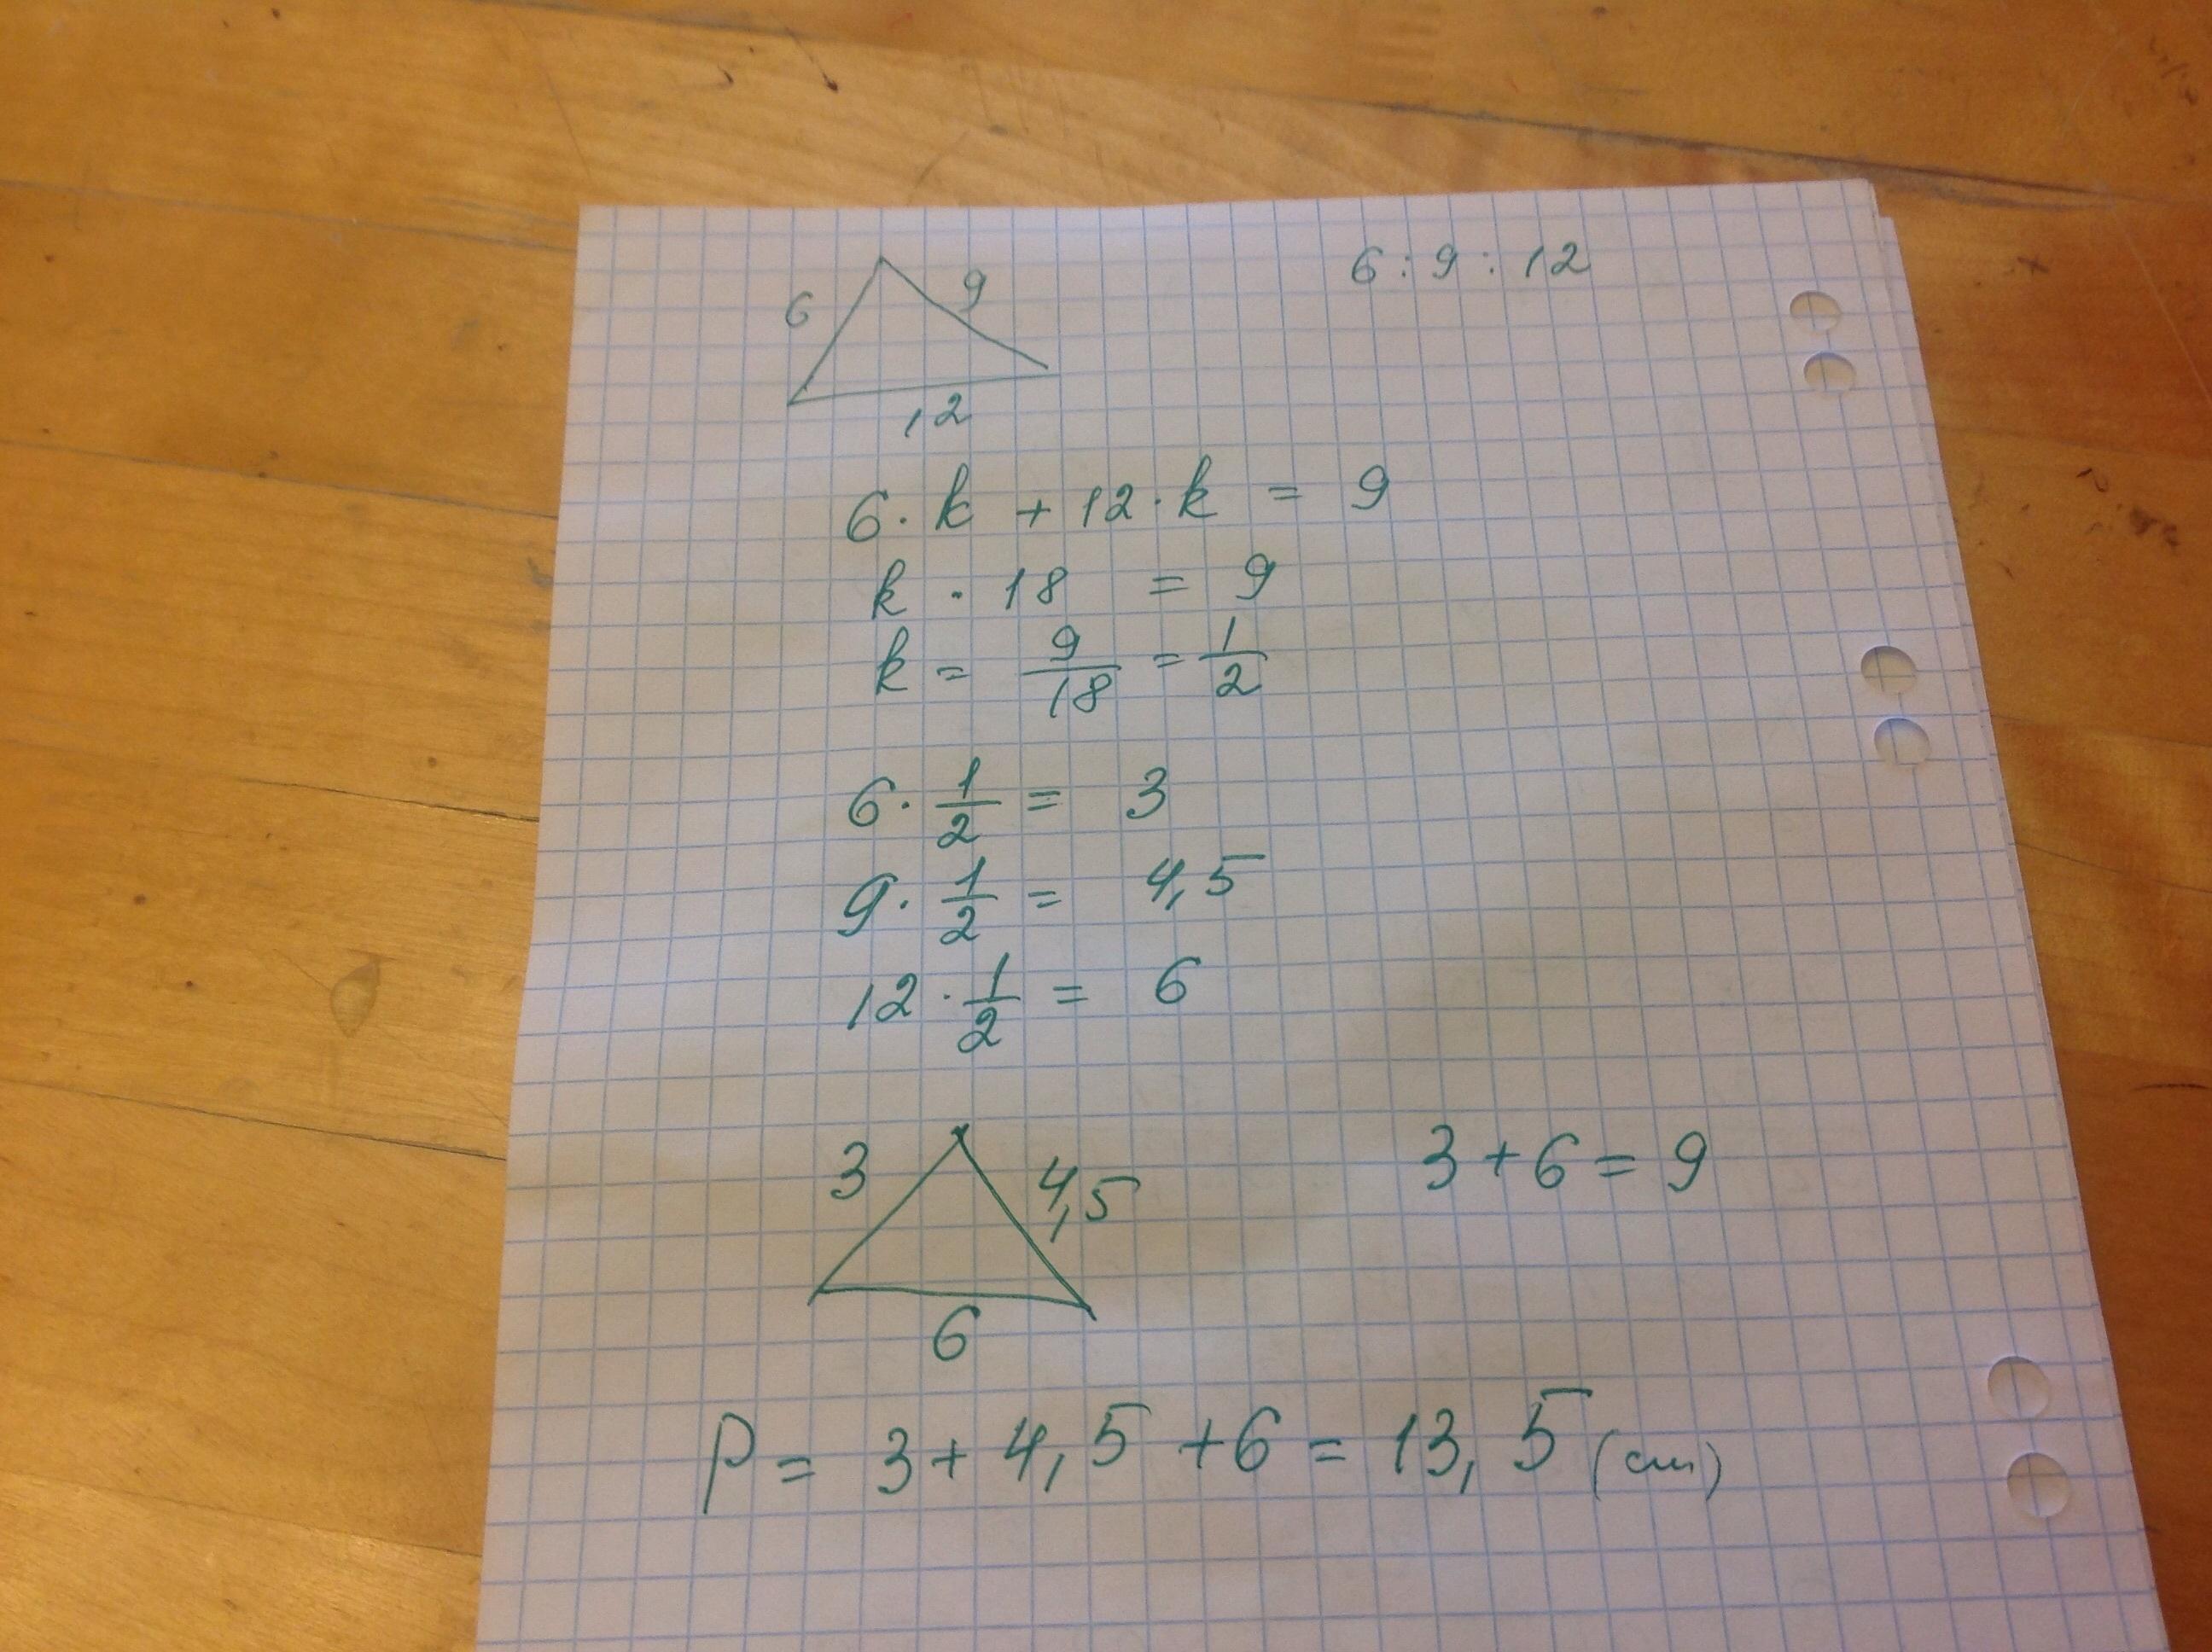 6 9 6 : 9 : 12
12
6 · k + 12 · k = 9
k · 18 = 9
k = 9/18 = 1/2
6 · 1/2 = 3
9 · 1/2 = 4,5
12 · 1/2 = 6
3 4,5 3 + 6 = 9
6
P = 3 + 4,5 + 6 = 13,5 (cm)